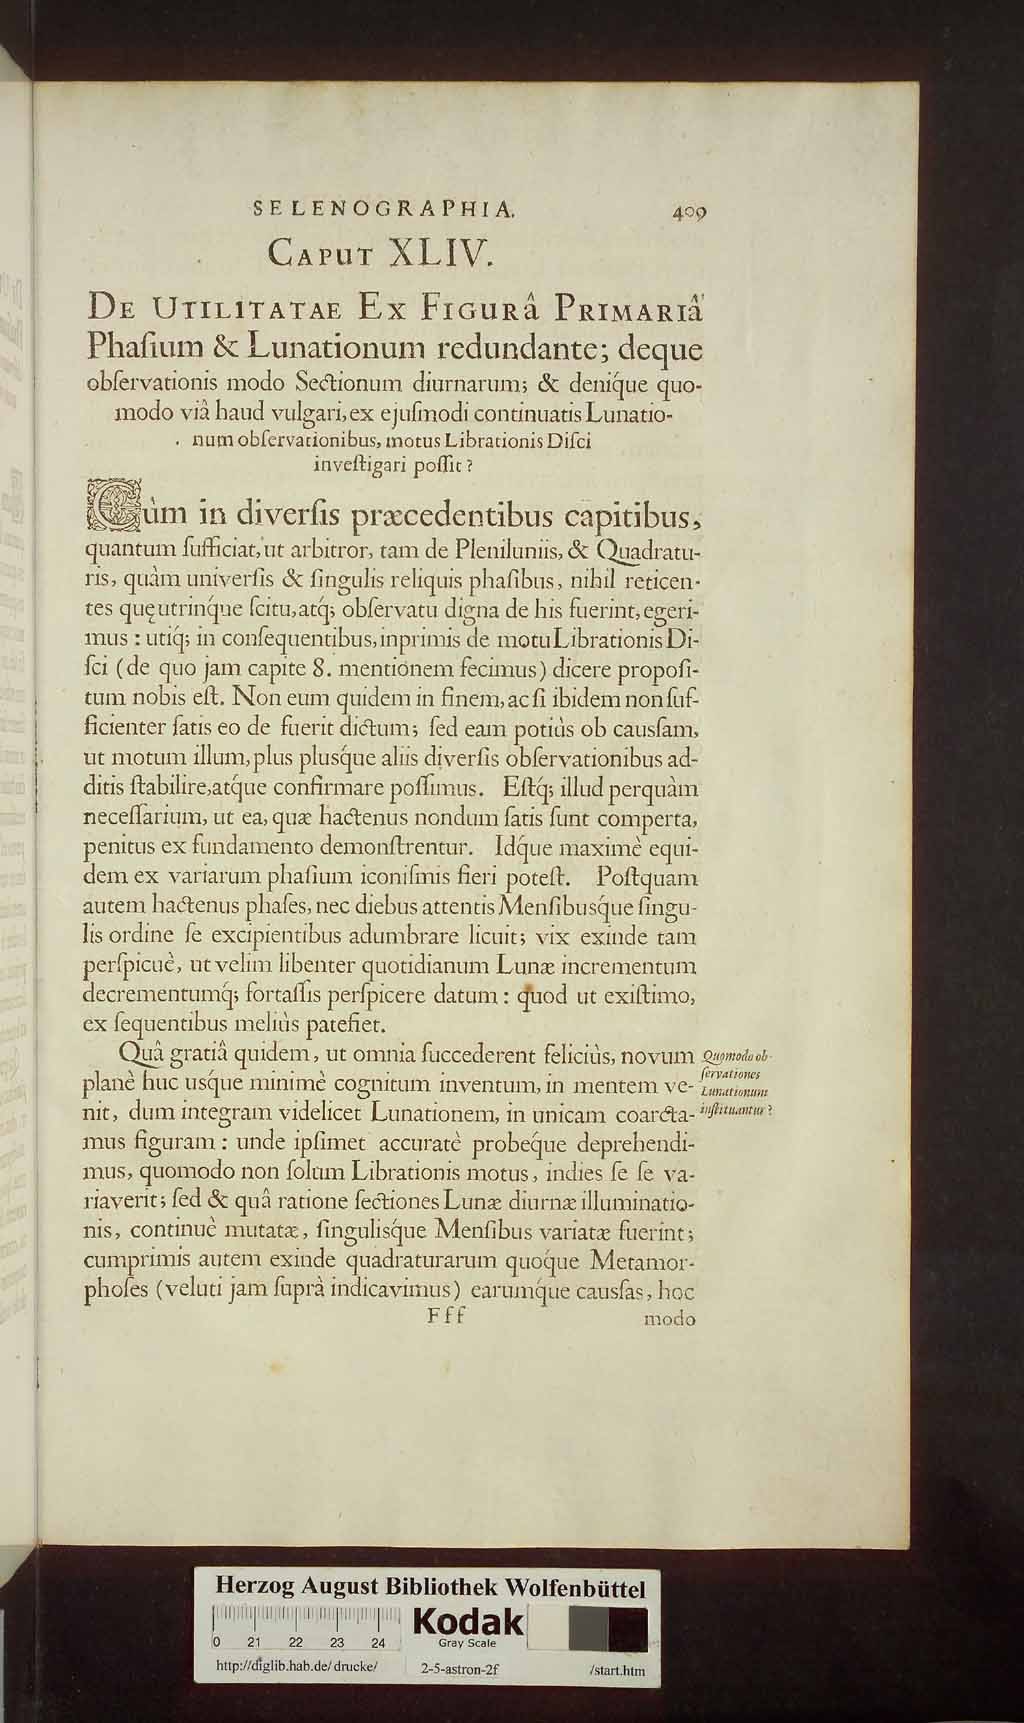 SELENOGRAPHIA. 409
CAPUT XLIV.
DE UTILITATAE EX FIGURâ PRIMARIâ
Phaſium & Lunationum redundante; deque
obſervationis modo Sectionum diurnarum; & deniq́ue quo-
modo viâ haud vulgari, ex ejuſmodi continuatis Lunatio-
num obſervationibus, motus Librationis Diſci
inveſtigari poſſit?
Cùm in diverſis præcedentibus capitibus,
quantum ſufficiat, ut arbitror, tam de Pleniluniis, & Quadratu-
ris, quàm univerſis & ſingulis reliquis phaſibus, nihil reticen-
tes quę utrinq́ue ſcitu, atq́; obſervatu digna de his fuerint, egeri-
mus: utiq́; in conſequentibus, inprimis de motu Librationis Di-
ſci (de quo jam capite 8. mentionem fecimus) dicere propoſi-
tum nobis eſt. Non eum quidem in finem, ac ſi ibidem non ſuf-
ficienter ſatis eo de fuerit dictum; ſed eam potiùs ob cauſſam,
ut motum illum, plus plusq́ue aliis diverſis obſervationibus ad-
ditis ſtabilire, atq́ue confirmare poſſimus. Eſtq́; illud perquàm
neceſſarium, ut ea, quæ hactenus nondum ſatis ſunt comperta,
penitus ex fundamento demonſtrentur. Idq́ue maximè equi-
dem ex variarum phaſium iconiſmis fieri poteſt. Poſtquam
autem hactenus phaſes, nec diebus attentis Menſibusq́ue ſingu-
lis ordine ſe excipientibus adumbrare licuit; vix exinde tam
perſpicuè, ut velim libenter quotidianum Lunæ incrementum
decrementumq́; fortaſſis perſpicere datum: quod ut exiſtimo,
ex ſequentibus meliùs patefiet.
Quâ gratiâ quidem, ut omnia ſuccederent feliciùs, novum
planè huc usq́ue minimè cognitum inventum, in mentem ve-
nit, dum integram videlicet Lunationem, in unicam coarcta-
mus figuram: unde ipſimet accuratè probeq́ue deprehendi-
mus, quomodo non ſolùm Librationis motus, indies ſe ſe va-
riaverit; ſed & quâ ratione ſectiones Lunæ diurnæ illuminatio-
nis, continuè mutatæ, ſingulisq́ue Menſibus variatæ fuerint;
cumprimis autem exinde quadraturarum quoq́ue Metamor-
phoſes (veluti jam ſuprà indicavimus) earumq́ue cauſſas, hoc
Fff modo
Quomodo ob-
ſervationes
Lunationum
inſtituantur?
Herzog August Bibliothek Wolfenbüttel
0 21 22 23 24
Kodak
Gray Scale
http://diglib.hab.de/drucke/ 2-5-astron-2f /start.htm